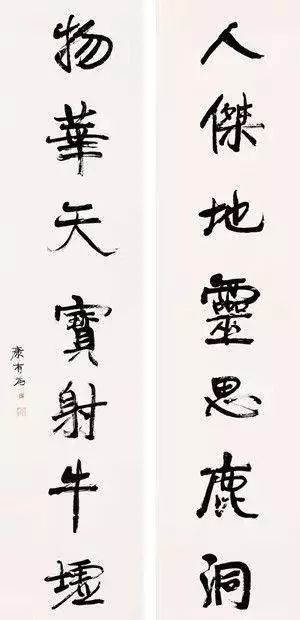 人傑地靈思鹿洞
物華天寶射牛墟
康有为